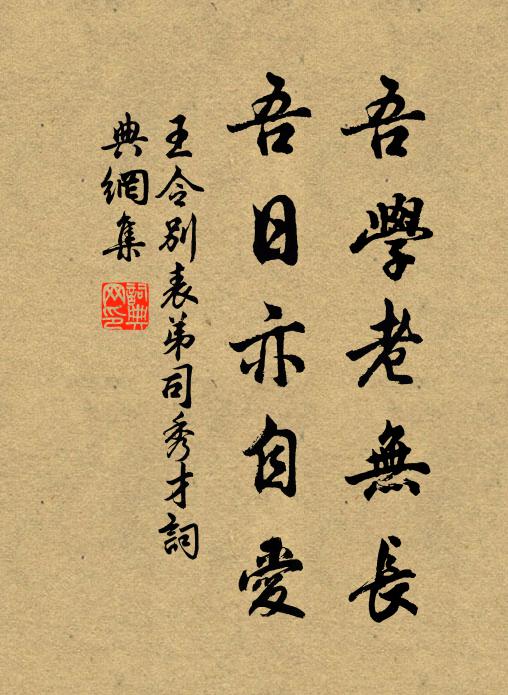 吾學老無長
吾日亦自愛
王令別表弟司秀才詞
典網集
詞典网印